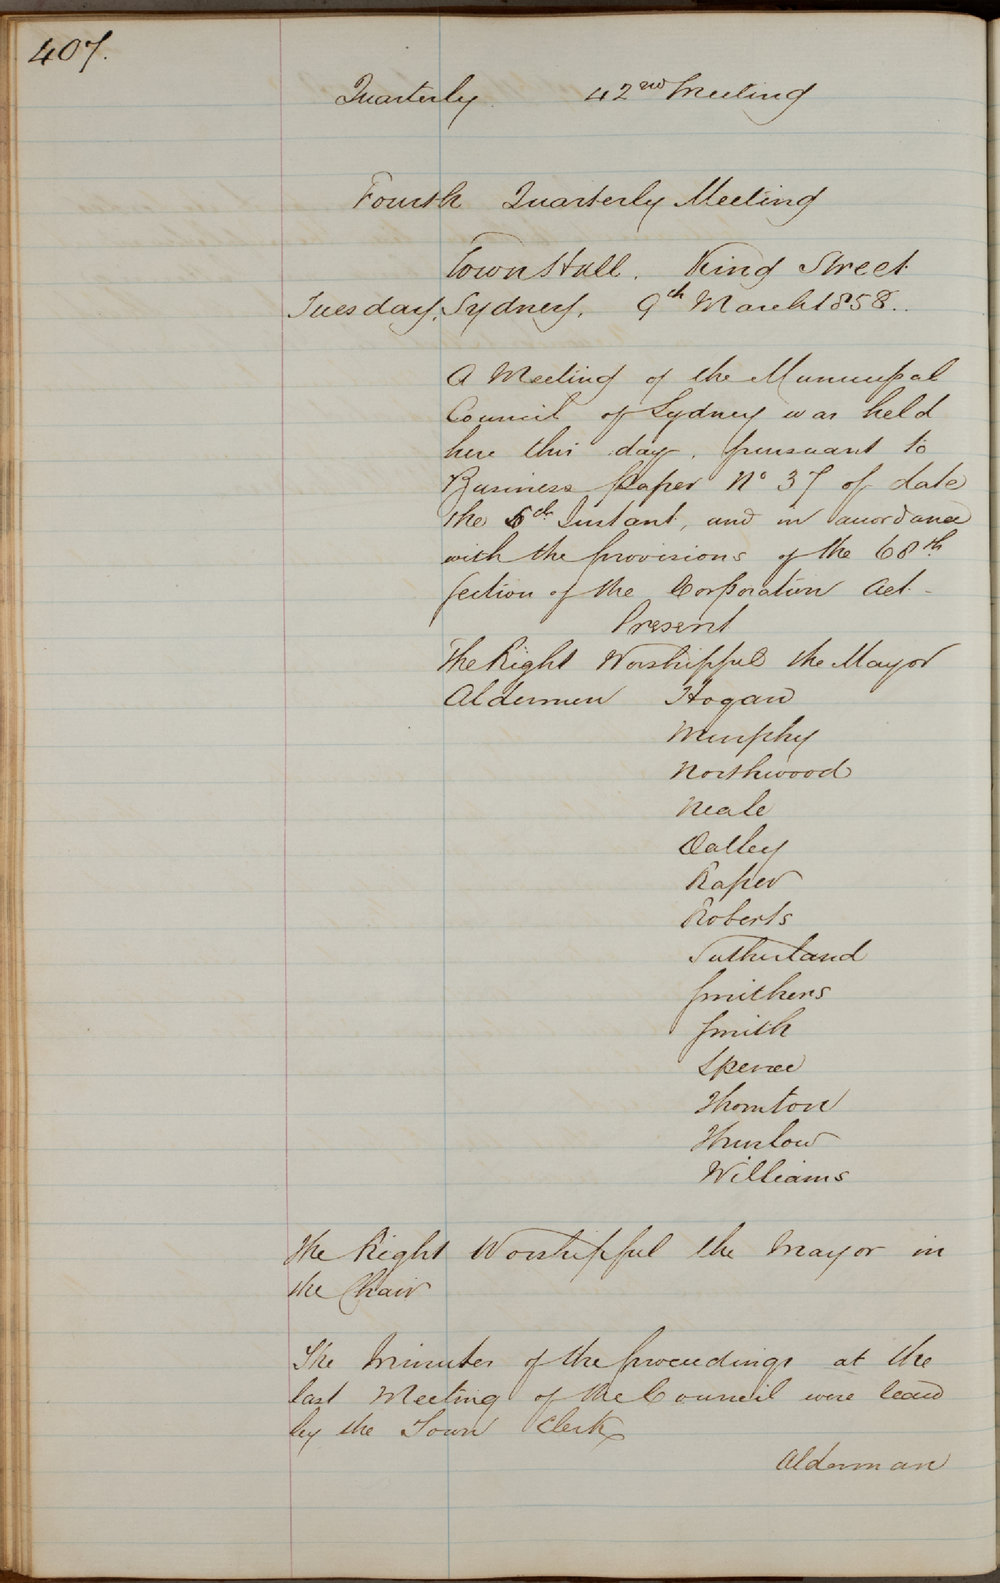 407.
Quarterly 42nd Meeting
Fourth Quarterly Meeting
Town Hall. King Street
Tuesday, Sydney, 9th March 1858..
A Meeting of the Municipal
Council of Sydney was held
here this day, pursuant to
Business Paper No 37 of date
the 5th Instant, and in accordance
with the provisions of the 68th
Section of the Corporation Act.
Present
The Right Worshipful the Mayor
Aldermen Hogan
Murphy
Northwood
Neale
Oatley
Raper
Roberts
Sutherland
Smithers
Smith
Spence
Thornton
Thurlow
Williams
The Right Worshipful the Mayor in
the Chair
The Minutes of the proceedings at the
last Meeting of the Council were read
by the Town Clerk
Alderman